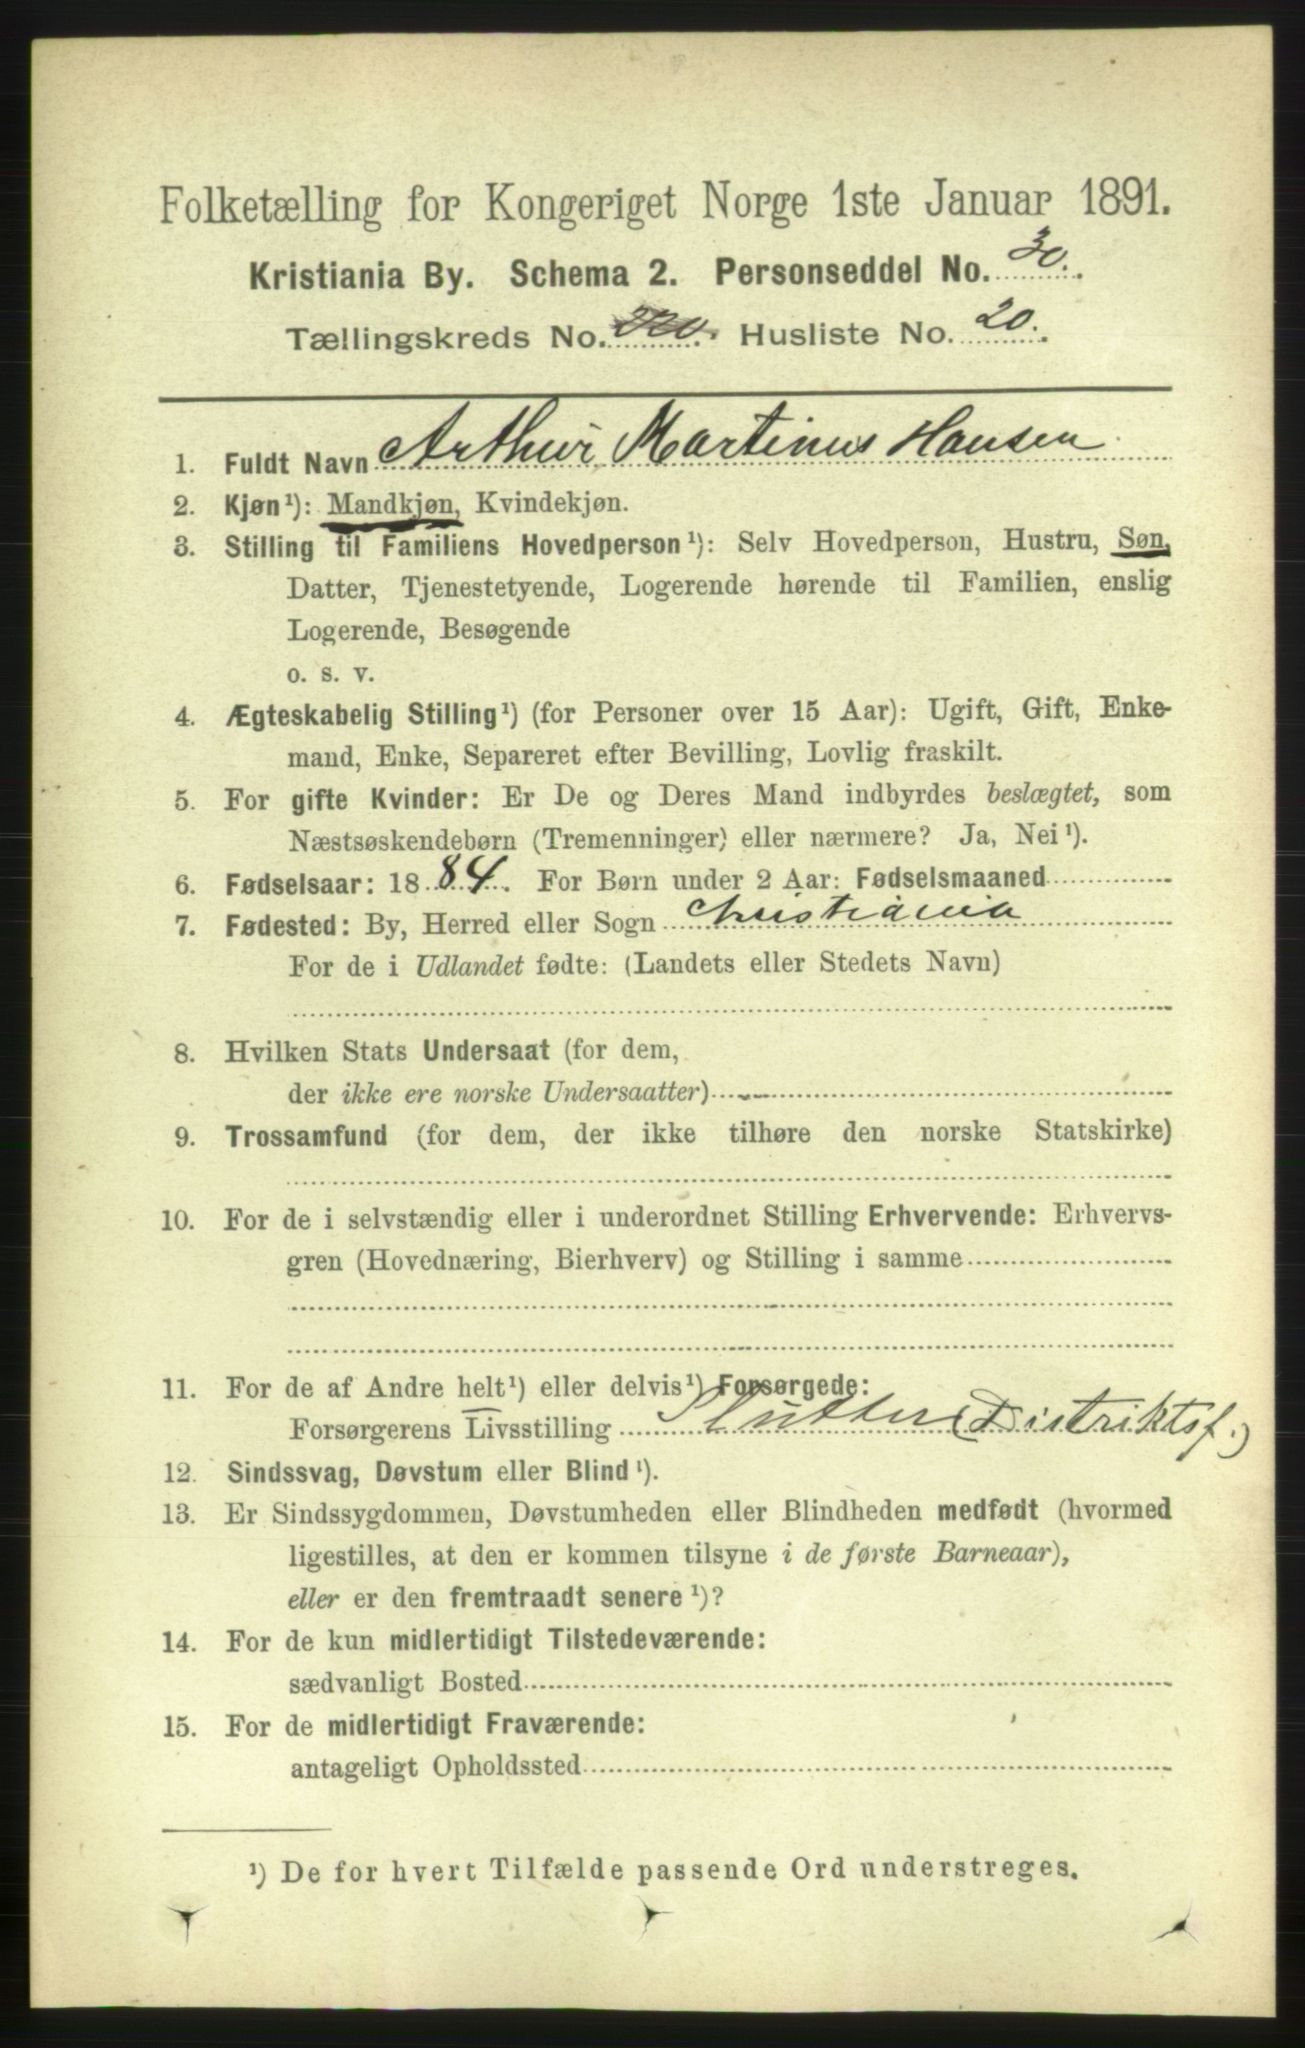 Folketælling for Kongeriget Norge 1ste Januar 1891.
Kristiania By. Schema 2. Personseddel No. 30.
Tællingskreds No. 220. Husliste No. 20.
1. Fuldt Navn Arthur Martinus Hansen
2. Kjøn¹): Mandkjøn, Kvindekjøn.
3. Stilling til Familiens Hovedperson¹): Selv Hovedperson, Hustru, Søn,
Datter, Tjenestetyende, Logerende hørende til Familien, enslig
Logerende, Besøgende
o. s. v.
4. Ægteskabelig Stilling¹) (for Personer over 15 Aar): Ugift, Gift, Enke-
mand, Enke, Separeret efter Bevilling, Lovlig fraskilt.
5. For gifte Kvinder: Er De og Deres Mand indbyrdes beslægtet, som
Næstsøskendebørn (Tremenninger) eller nærmere? Ja, Nei¹).
6. Fødselsaar: 1884. For Børn under 2 Aar: Fødselsmaaned
7. Fødested: By, Herred eller Sogn Christiania
For de i Udlandet fødte: (Landets eller Stedets Navn)
8. Hvilken Stats Undersaat (for dem,
der ikke ere norske Undersaatter)
9. Trossamfund (for dem, der ikke tilhøre den norske Statskirke)
10. For de i selvstændig eller i underordnet Stilling Erhvervende: Erhvervs-
gren (Hovednæring, Bierhverv) og Stilling i samme
11. For de af Andre helt¹) eller delvis¹) Forsørgede:
Forsørgerens Livsstilling Slutter (Distriktsf.)
12. Sindssvag, Døvstum eller Blind¹).
13. Er Sindssygdommen, Døvstumheden eller Blindheden medfødt (hvormed
ligestilles, at den er kommen tilsyne i de første Barneaar),
eller er den fremtraadt senere¹)?
14. For de kun midlertidigt Tilstedeværende:
sædvanligt Bosted
15. For de midlertidigt Fraværende:
antageligt Opholdssted
¹) De for hvert Tilfælde passende Ord understreges.